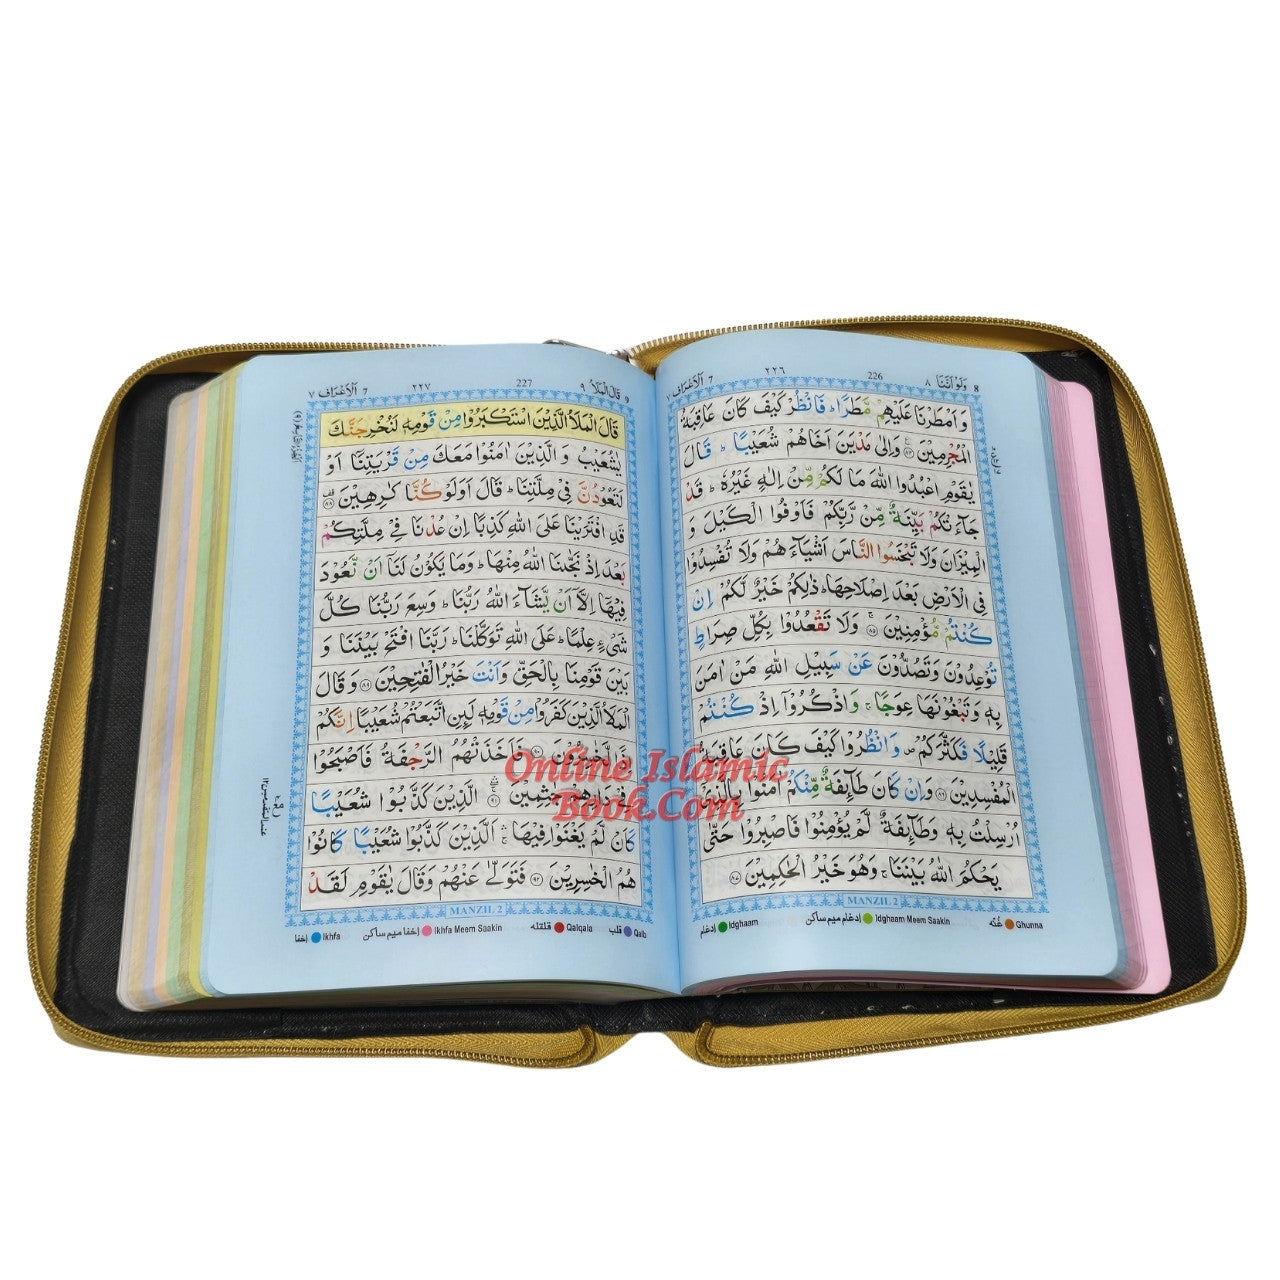 ٧ اَلْاَعْرَاف 7
٢٢٦
226
وَلَوْ اَنَّنَا ٨
8
وَ اَمْطَرْنَا عَلَيْهِمْ مَّطَرًا ؕ فَانْظُرْ كَيْفَ كَانَ عَاقِبَةُ
الْمُجْرِمِيْنَ ۟ وَاِلٰى مَدْيَنَ اَخَاهُمْ شُعَيْبًا ؕ قَالَ
يٰقَوْمِ اعْبُدُوا اللّٰهَ مَا لَكُمْ مِّنْ اِلٰهٍ غَيْرُهٗ ؕ قَدْ
جَآءَتْكُمْ بَيِّنَةٌ مِّنْ رَّبِّكُمْ فَاَوْفُوا الْكَيْلَ وَ
الْمِيْزَانَ وَلَا تَبْخَسُوا النَّاسَ اَشْيَآءَهُمْ وَلَا تُفْسِدُوْا
فِى الْاَرْضِ بَعْدَ اِصْلَاحِهَا ؕ ذٰلِكُمْ خَيْرٌ لَّكُمْ اِنْ
كُنْتُمْ مُّؤْمِنِيْنَ ۚ ٨٥ وَلَا تَقْعُدُوْا بِكُلِّ صِرَاطٍ
تُوْعِدُوْنَ وَتَصُدُّوْنَ عَنْ سَبِيْلِ اللّٰهِ مَنْ اٰمَنَ
بِهٖ وَتَبْغُوْنَهَا عِوَجًا ۚ وَاذْكُرُوْۤا اِذْ كُنْتُمْ
قَلِيْلًا فَكَثَّرَكُمْ ۪ وَانْظُرُوْا كَيْفَ كَانَ عَاقِبَةُ
الْمُفْسِدِيْنَ ٨٦ وَاِنْ كَانَ طَآئِفَةٌ مِّنْكُمْ اٰمَنُوْا بِالَّذِىْۤ
اُرْسِلْتُ بِهٖ وَطَآئِفَةٌ لَّمْ يُؤْمِنُوْا فَاصْبِرُوْا حَتّٰى
يَحْكُمَ اللّٰهُ بَيْنَنَا ۚ وَهُوَ خَيْرُ الْحٰكِمِيْنَ ٨٧
MANZIL 2
ادغام Idghaam ادغام میم ساکن Idghaam Meem Saakin غُنّہ Ghunna
٧ اَلْاَعْرَاف 7
٢٢٧
227
قَالَ الْمَلَاُ ٩
9
قَالَ الْمَلَاُ الَّذِيْنَ اسْتَكْبَرُوْا مِنْ قَوْمِهٖ لَنُخْرِجَنَّكَ
يٰشُعَيْبُ وَ الَّذِيْنَ اٰمَنُوْا مَعَكَ مِنْ قَرْيَتِنَاۤ اَوْ
لَتَعُوْدُنَّ فِىْ مِلَّتِنَا ؕ قَالَ اَوَلَوْ كُنَّا كٰرِهِيْنَ ٨٨
قَدِ افْتَرَيْنَا عَلَى اللّٰهِ كَذِبًا اِنْ عُدْنَا فِىْ مِلَّتِكُمْ
بَعْدَ اِذْ نَجّٰىنَا اللّٰهُ مِنْهَا ؕ وَمَا يَكُوْنُ لَنَاۤ اَنْ نَّعُوْدَ
فِيْهَاۤ اِلَّاۤ اَنْ يَّشَآءَ اللّٰهُ رَبُّنَا ؕ وَسِعَ رَبُّنَا كُلَّ
شَىْءٍ عِلْمًا ؕ عَلَى اللّٰهِ تَوَكَّلْنَا ؕ رَبَّنَا افْتَحْ بَيْنَنَا وَ
بَيْنَ قَوْمِنَا بِالْحَقِّ وَاَنْتَ خَيْرُ الْفٰتِحِيْنَ ٨٩ وَ قَالَ
الْمَلَاُ الَّذِيْنَ كَفَرُوْا مِنْ قَوْمِهٖ لَئِنِ اتَّبَعْتُمْ شُعَيْبًا اِنَّكُمْ
اِذًا لَّخٰسِرُوْنَ ٩٠ فَاَخَذَتْهُمُ الرَّجْفَةُ فَاَصْبَحُوْا
فِىْ دَارِهِمْ جٰثِمِيْنَ ٩١ الَّذِيْنَ كَذَّبُوْا شُعَيْبًا
كَاَنْ لَّمْ يَغْنَوْا فِيْهَا ۚ اَلَّذِيْنَ كَذَّبُوْا شُعَيْبًا كَانُوْا
هُمُ الْخٰسِرِيْنَ ٩٢ فَتَوَلّٰى عَنْهُمْ وَقَالَ يٰقَوْمِ لَقَدْ
MANZIL 2
اخفا Ikhfa اخفا میم ساکن Ikhfa Meem Saakin قلقلہ Qalqala قلب Qalb
Online Islamic
Book.Com